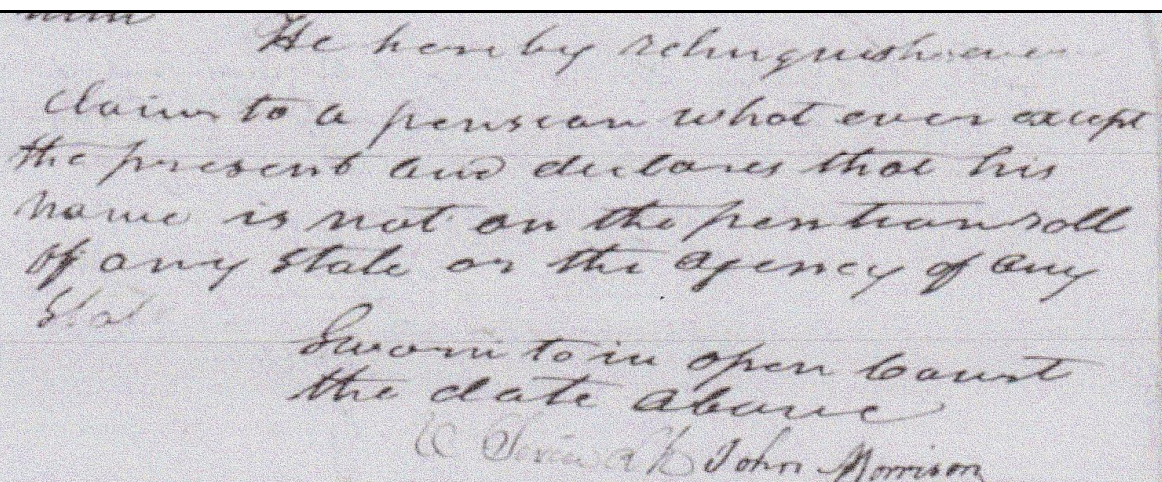 He hereby relinquish every
claim to a pension what ever except
the present and declares that his
name is not on the pention roll
of any State or the agency of any
Stat
Sworn to in open Court
the date above
John Morrison